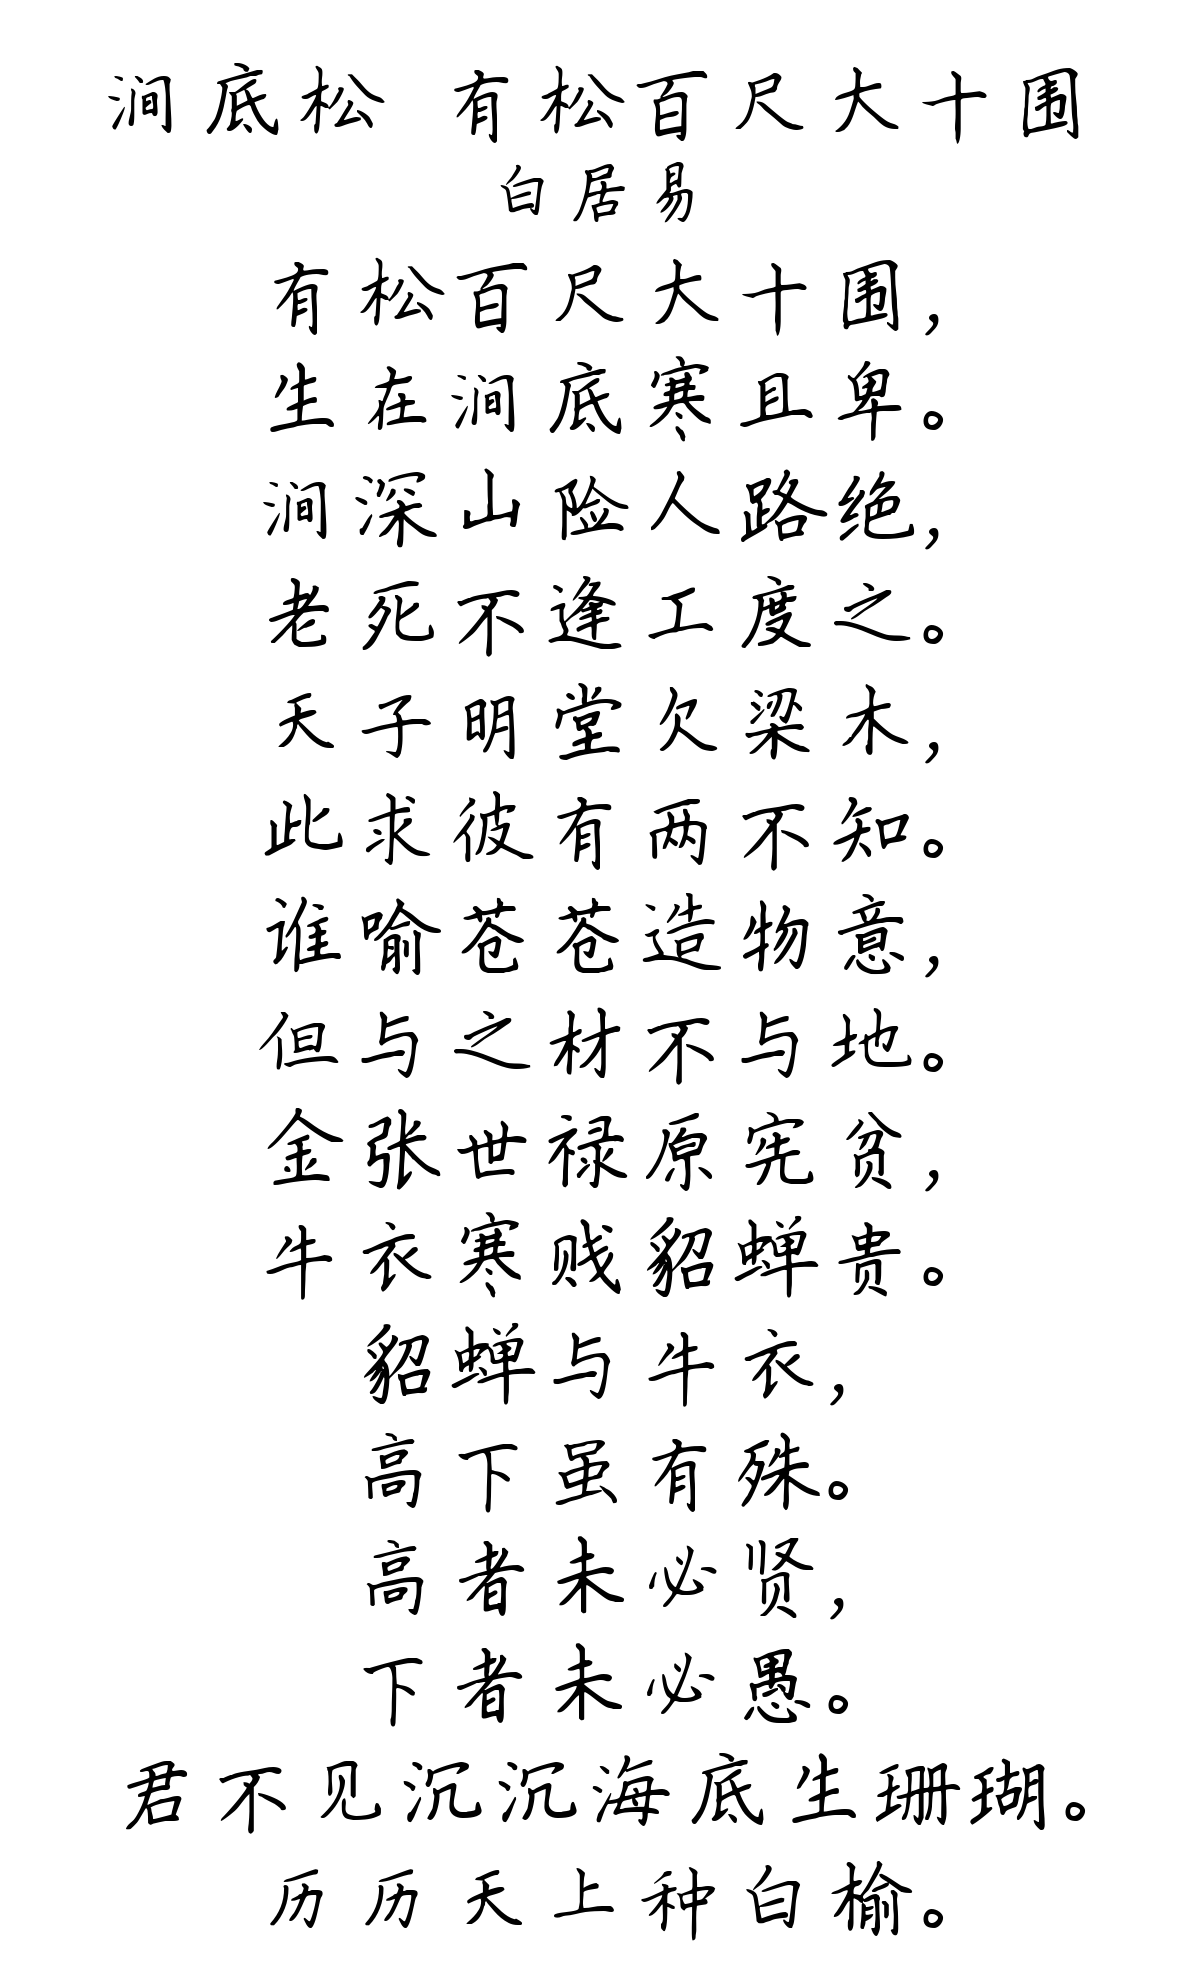 涧底松 有松百尺大十围
白居易
有松百尺大十围，
生在涧底寒且卑。
涧深山险人路绝，
老死不逢工度之。
天子明堂欠梁木，
此求彼有两不知。
谁喻苍苍造物意，
但与之材不与地。
金张世禄原宪贫，
牛衣寒贱貂蝉贵。
貂蝉与牛衣，
高下虽有殊。
高者未必贤，
下者未必愚。
君不见沉沉海底生珊瑚。
历历天上种白榆。